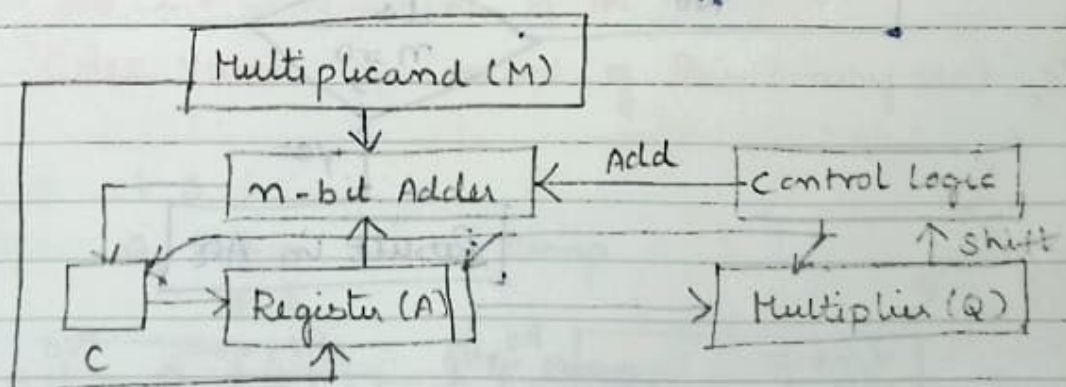 Multiplicand (M)
n-bit Adder
Add
Control Logic
Shift
Register (A)
Multiplier (Q)
C